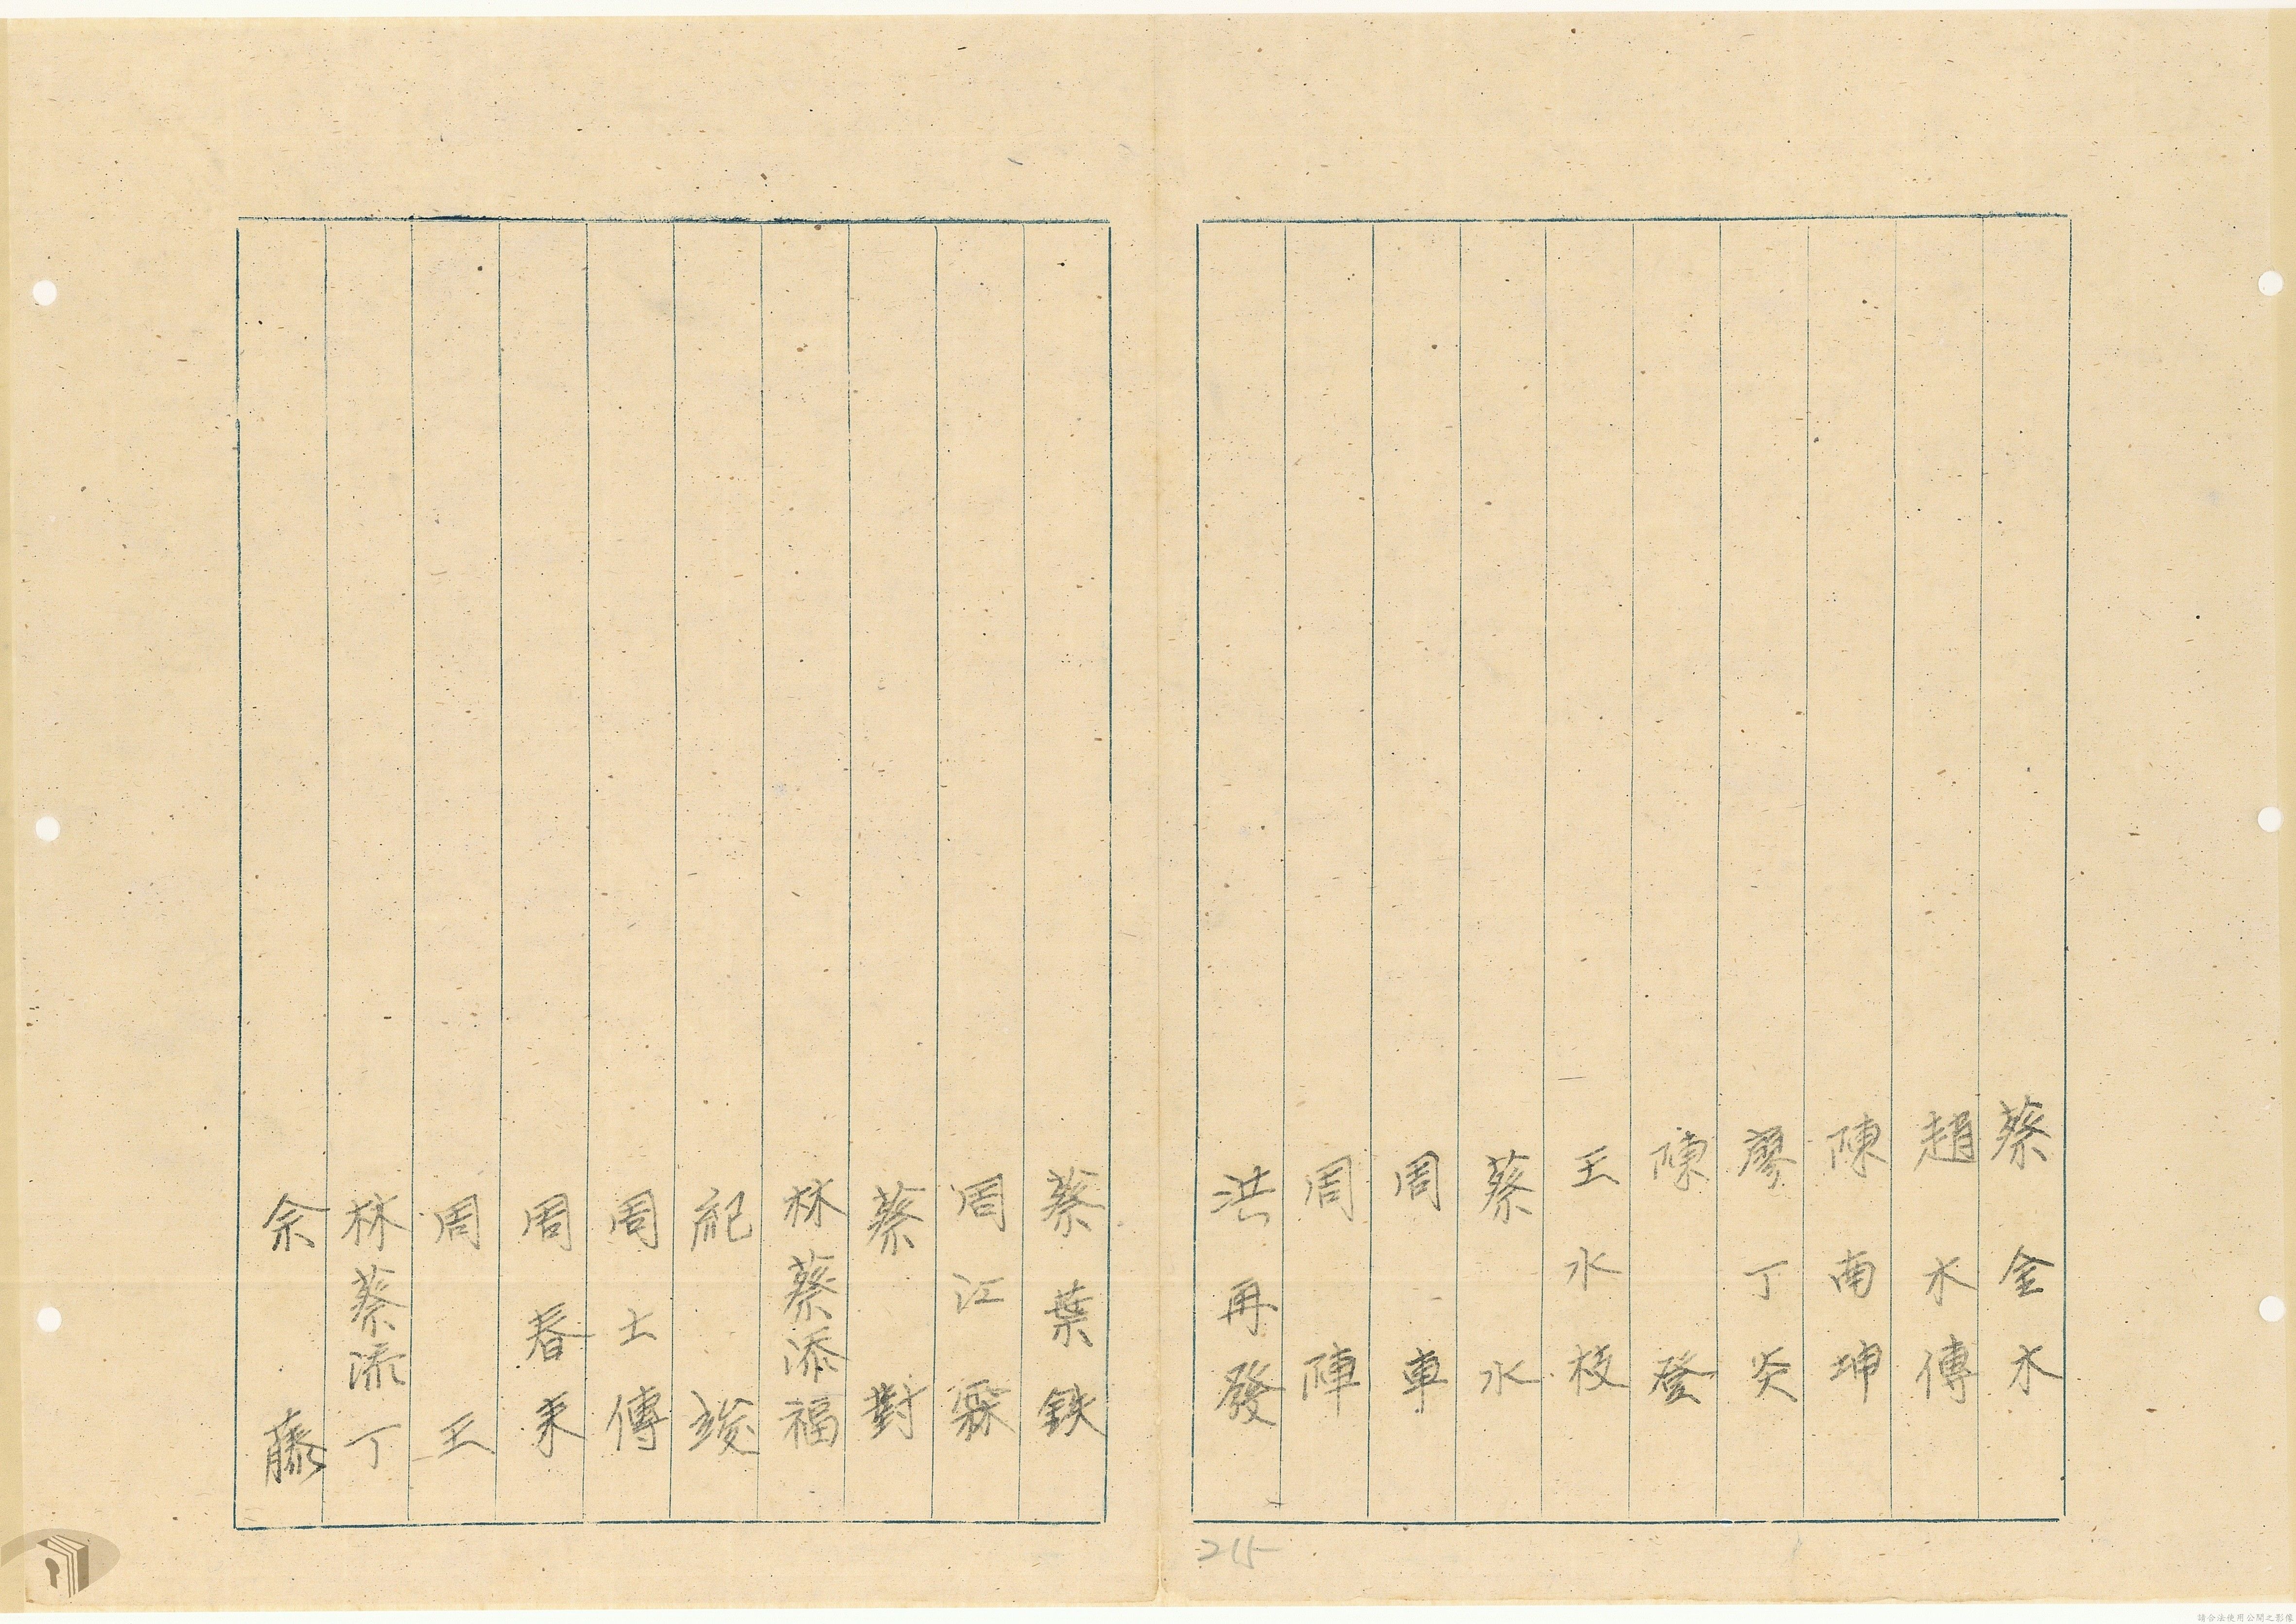 蔡金水
趙水傳
陳南坤
廖丁炎
陳登
王水枝
蔡水
周車
周陣
洪再發
蔡葉鉄
周江霖
蔡對
林蔡添福
紀竣
周士傳
周春來
周王
林蔡添丁
余藤
215
請合法使用公開之影像